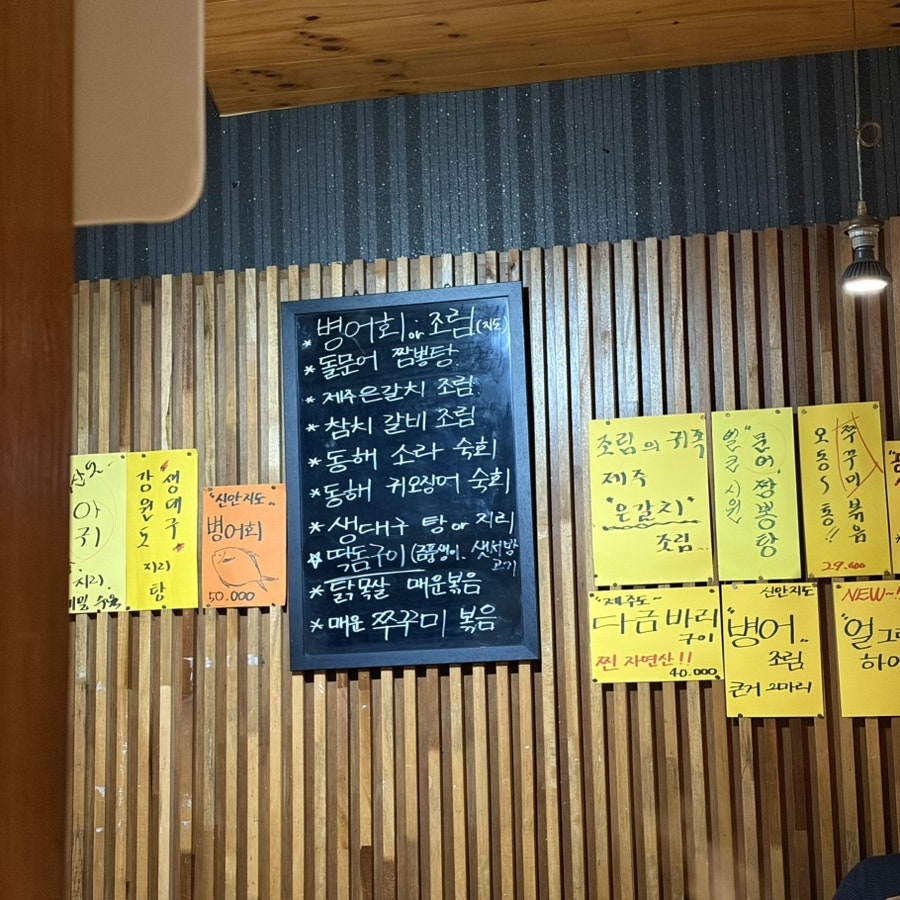 병어회 or 조림 (지도)
* 돌문어 짬뽕탕
* 제주은갈치 조림
* 참치 갈비 조림
* 동해 소라 숙회
* 동해 귀오징어 숙회
* 생대구 탕 or 지리
딱돔구이 (금풍쉥이. 샛서방
고기
* 닭목살 매운볶음
* 매운 쭈꾸미 볶음
아
귀
지리
생대구
강원도
지리
탕
"신안지도..
병어회
50.000
조림의 귀족
제주
"은갈치"
조림...
"문어, 짬뽕탕
얼큰 시원
쭈꾸미볶음
오동~통!!
29.000
"제주도~
다금바리
구이
찐 자연산!!
40.000
신안지도
"병어..
조림
큰거 2마리
NEW~!!
"얼그
하이